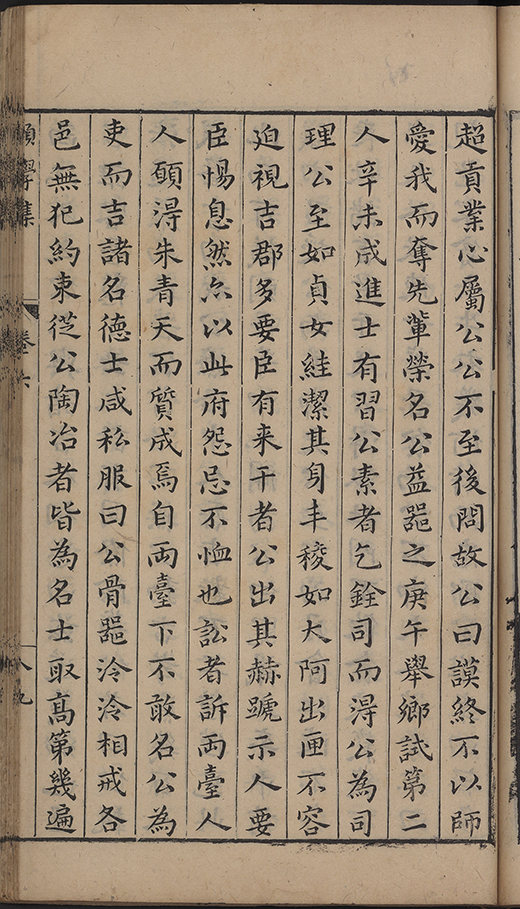 超貢業心屬公公不至後問故公曰謨終不以師
愛我而奪先輩榮名公益噐之庚午舉鄉試第二
人辛未成進士有習公素者乞銓司而淂公為司
理公至如貞女絓潔其身丰稜如大阿出匣不容
迫視吉郡多要臣有来干者公出其赫蹏示人要
臣惕息然亦以此府怨忌不恤也訟者訴両臺人
人願淂朱青天而質成焉自両臺下不敢名公為
吏而吉諸名德士咸私服曰公骨噐泠泠相戒各
邑無犯約束從公陶冶者皆為名士取髙第幾遍
學集
卷六